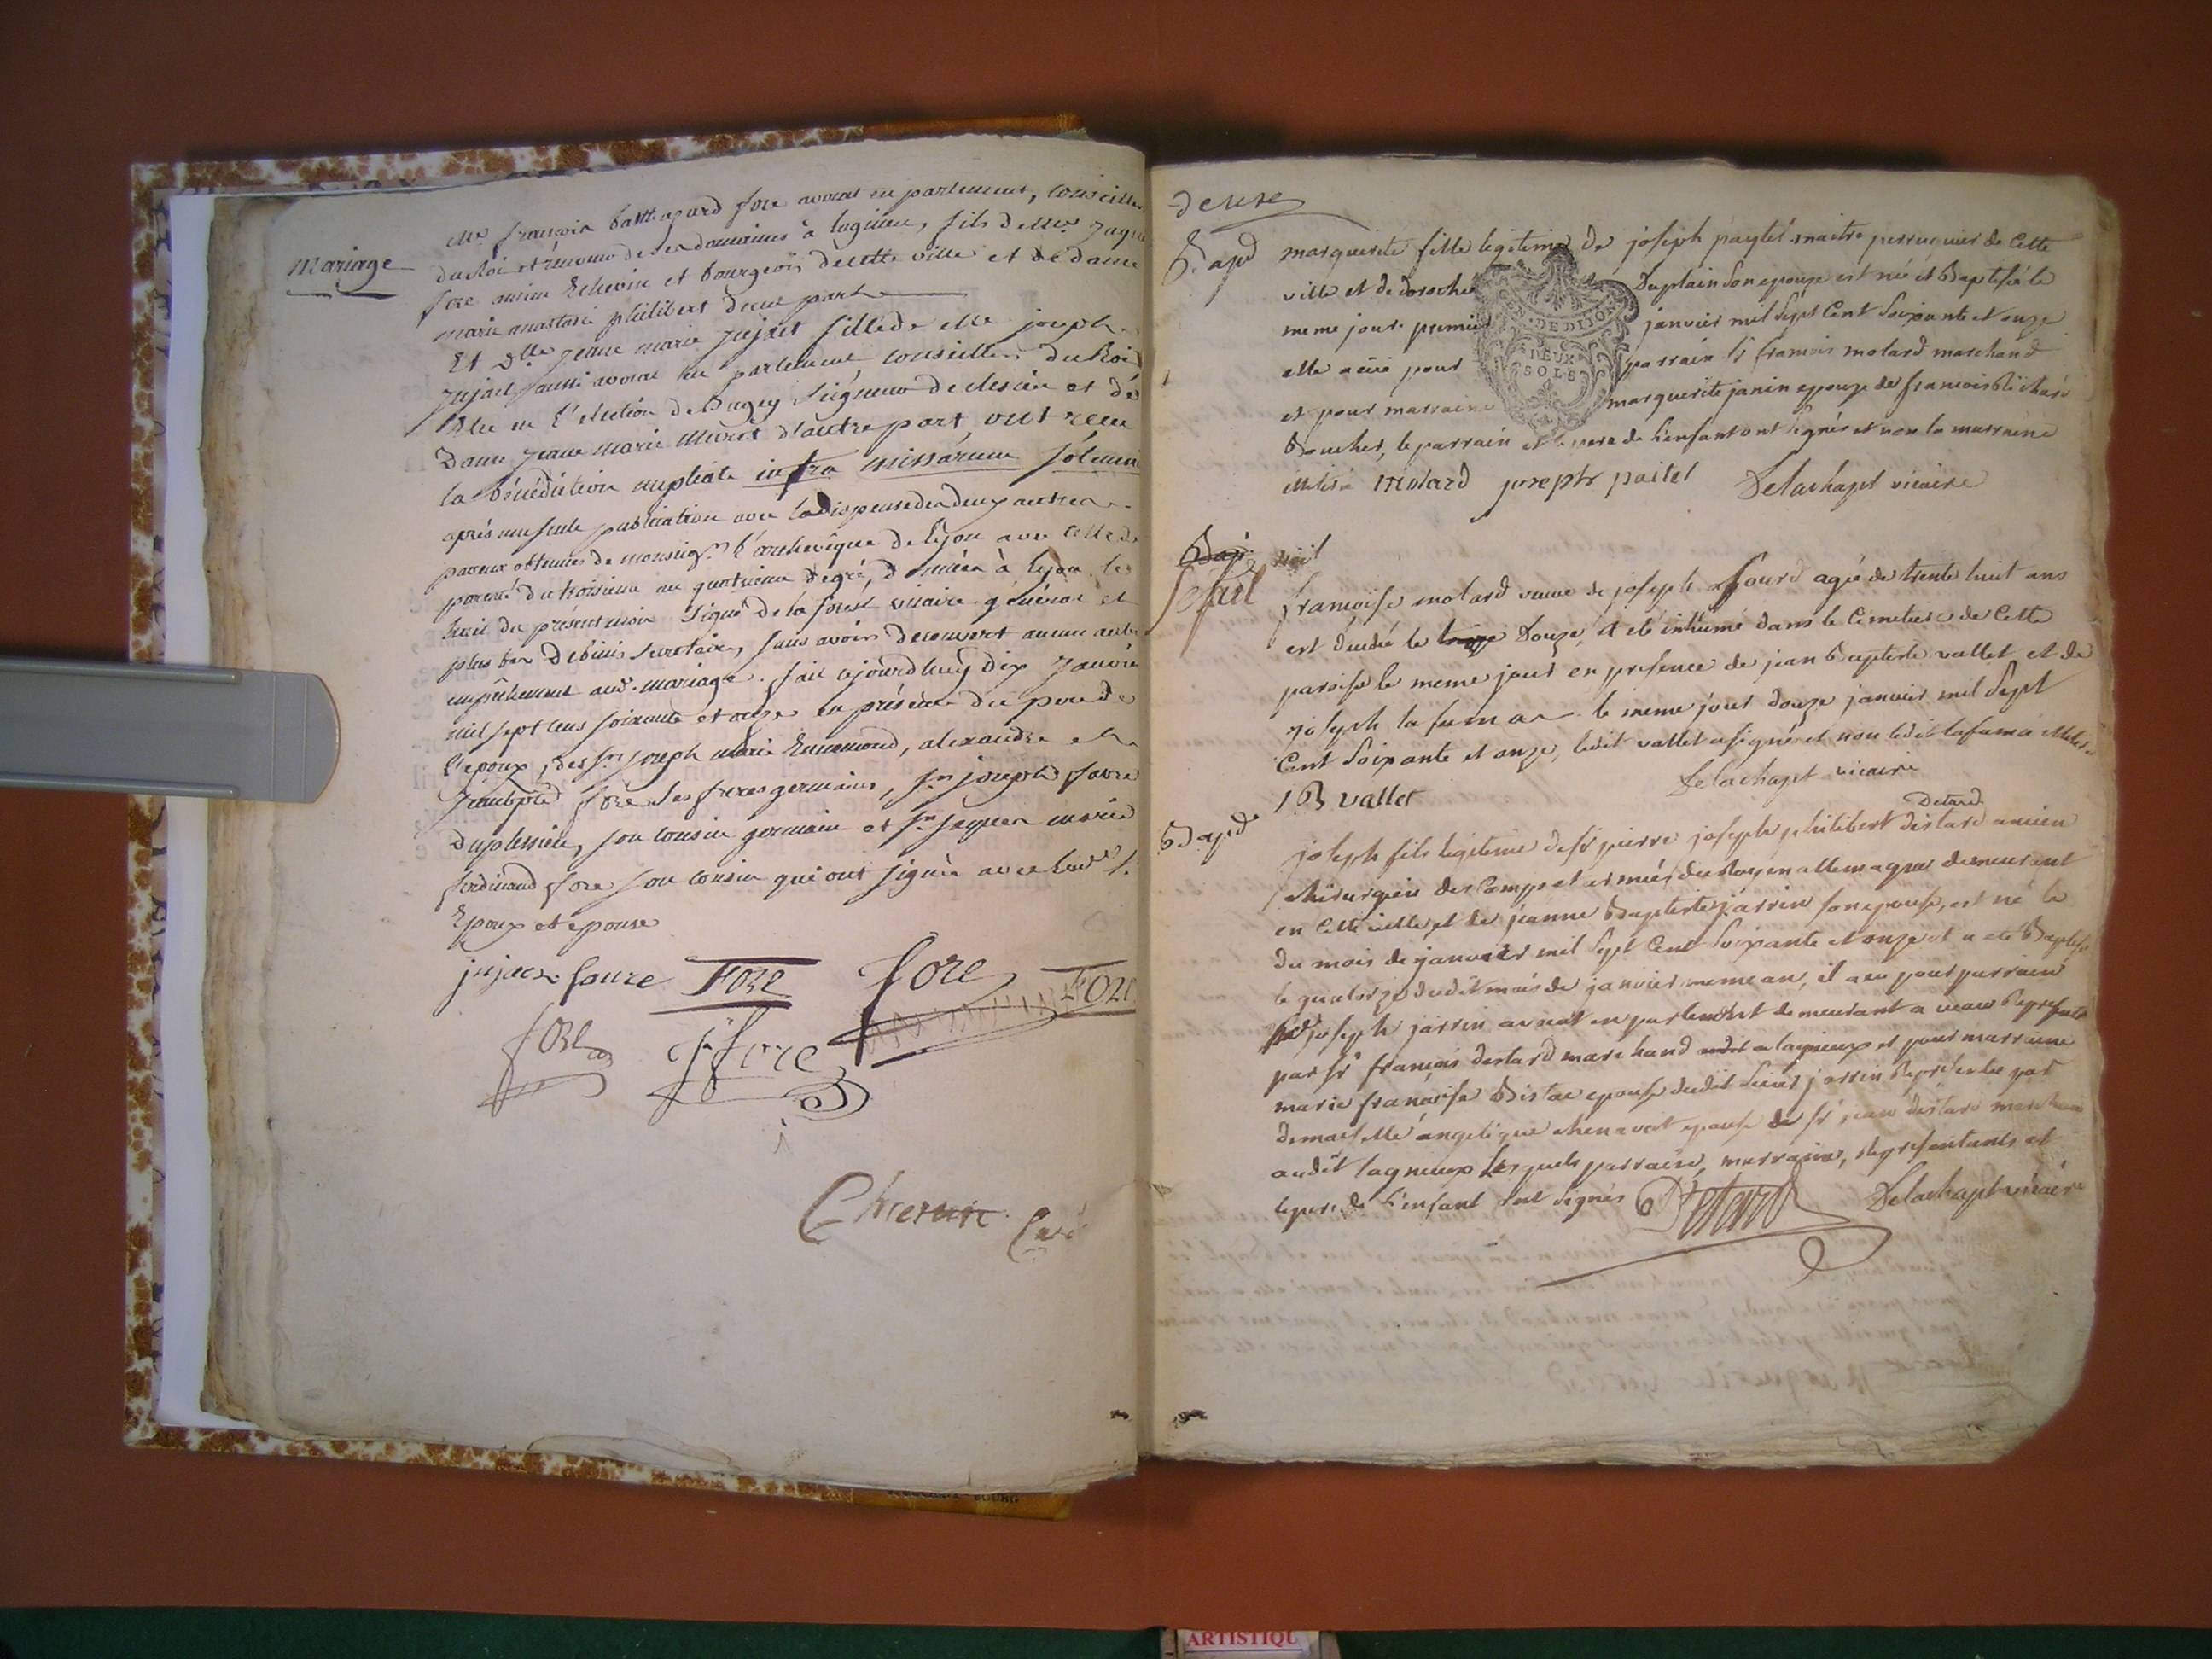 Mariage
Me françois balthazard fore avocat en parlement, conseiller
du Roi et receveur de ses domaines à lagnieu, fils de Me Jaque
fore ancien Echevin et bourgeois de cette ville et de dame
marie anastasie philibert d'une part
Et Dlle jeane marie jujast fille de Me joseph
jujast aussi avocat en parlement conseiller du Roi
Elu en l'election de Bugey Seigneur de et de
Dame jeane marie d'autre part, ont reçu
la bénédiction nuptiale infra missarum solemnia
après une seule publication avec la dispense des deux autres
obtenues de monseigr l'archevêque de Lyon avec celle de
parenté du troisieme au quatrieme degré, donnée à Lyon le
huit du present mois Signé de la forest vicaire général et
plus bas secretaire, sans avoir decouvert aucun autre
empêchement aud. mariage. fait ajourd'huy dix janvier
mil sept cens soixante et onze en présence du père de
l'epoux, des srs joseph marie Ennemond, alexandre et
fore ses freres germains, sr joseph favre
Duplessis, son cousin germain et sr jaques marie
ferdinand fore son cousin qui ont signés avec lesd. s.
Epoux et epouse
jujast foure FORE fore FORE
fore fore
Curé
deuxe
Bapt marguerite fille legitime de joseph paytel maitre perruquier de Cette
ville et de dorothé Duplain son epouze est né et Baptisée le
meme jour premier janvier mil Sept Cent Soixante et onze
elle a eü pour parrain sr françois molard marchand
et pour marraine marguerite janin epouze de francois Richard
Boucher, le parrain et le pere de l'enfant ont signés et non la marraine
illitée molard joseph paitel Delachapt vicaire
GN. DE DIJON
DEUX
SOLS
Bap
françoise molard veuve de joseph agée de trente huit ans
est decedée le treize Douze, et eté inhumé dans le Cimetiere de Cette
paroisse le meme jour en presence de jean Baptiste vallet et de
joseph lafuma le meme jour douze janvier mil Sept
Cent Soixante et onze, ledit vallet a signé et non ledit lafuma illitée
J B vallet Delachapt vicaire
Bapt Detard
joseph fils legitime de sr pierre joseph philibert distard ancien
chirurgien des Camps et armées du Roy en allemagne demeurant
en Cette ville et de jeanne Baptiste jarrin son epouse, est né le
du mois de janvier mil Sept Cent Soixante et onze et a eté Baptisé
le quatorze dudit mois de janvier meme an, il a eu pour parrain
joseph jarrin avocat en parlement demeurant a Representé
par sr françois destard marchand a lagnieux et pour marraine
marie françoise Distar epouse dudit Sieur jarrin Representée par
demoiselle angelique chenavat epouse de sr jean distard marchand
audit lagnieux lesquels parrain, marraine, Representants et
le pere de l'enfant ont signés Detard Delachapt vicaire
ARTISTIQU